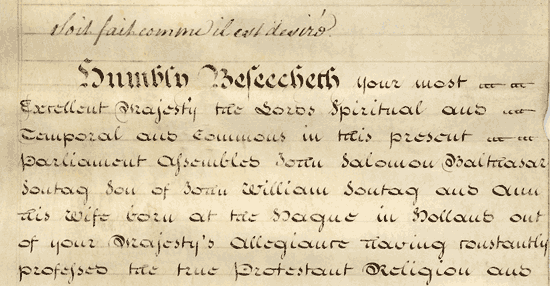 Soit fait comme il est desiré
Humbly Beseecheth your most
Excellent Majesty the Lords Spiritual and
Temporal and Commons in this present
Parliament Assembled John Salomon Balthasar
Sontag Son of John William Sontag and Ann
his Wife born at the Hague in Holland out
of your Majesty's Allegiance Having constantly
professed the true Protestant Religion and